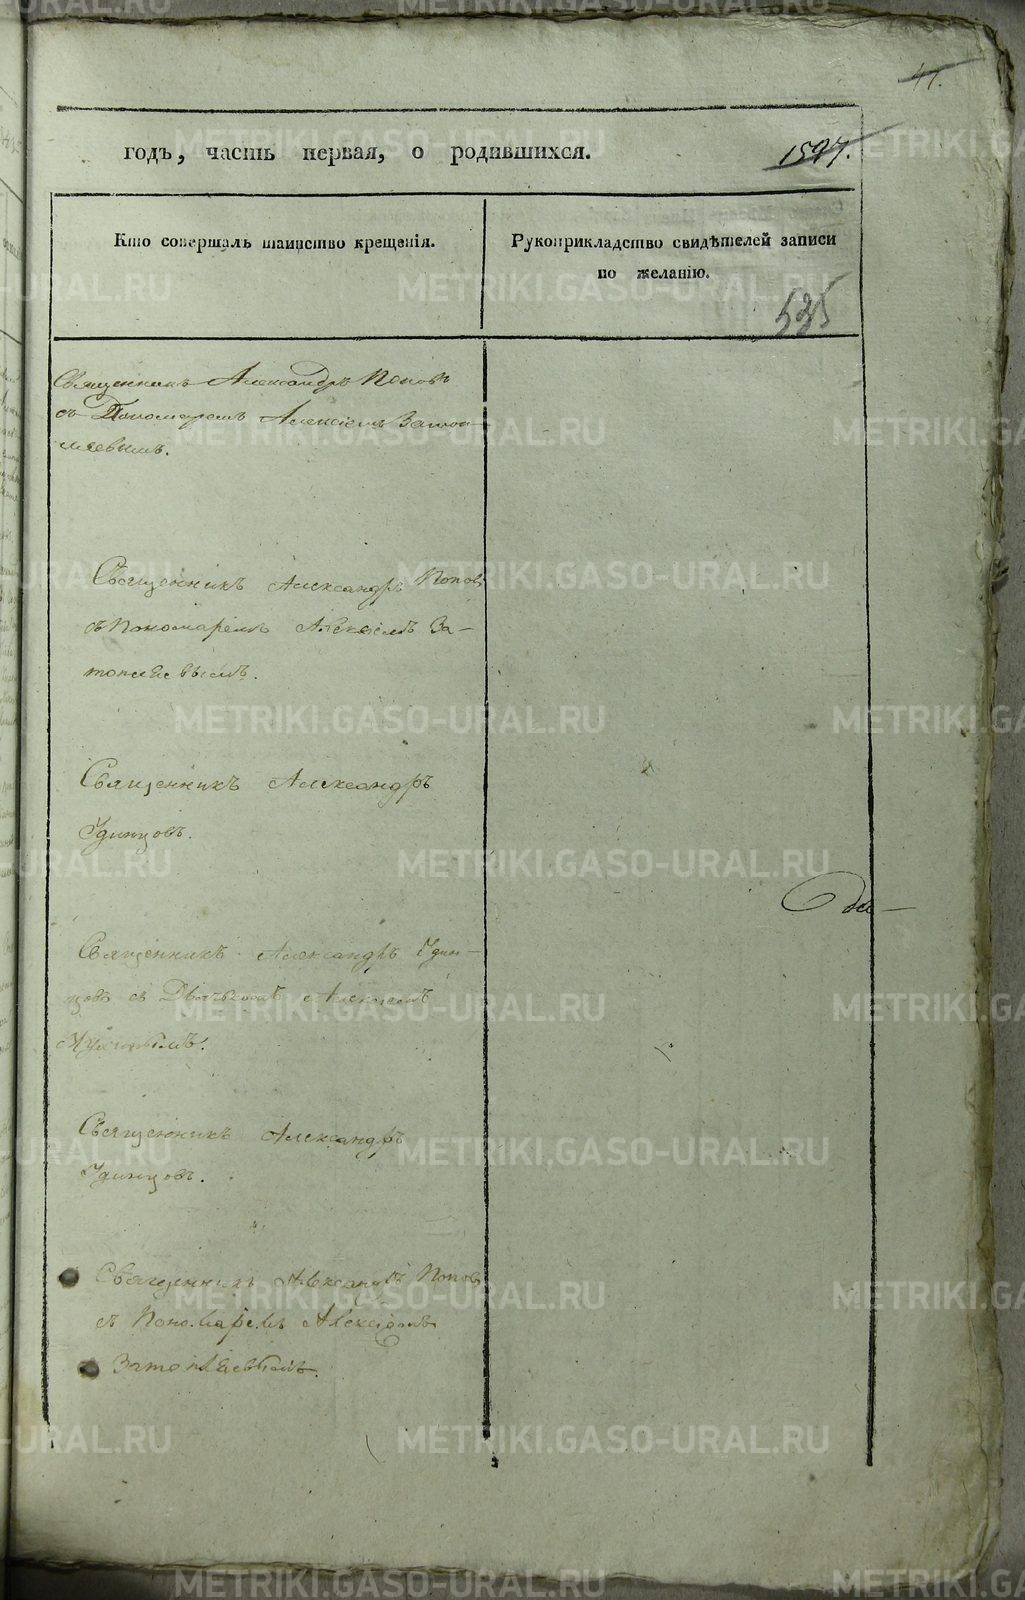 41.
годъ, часть первая, о родившихся.
1597.
Кто совершалъ таинство крещенія.
Рукоприкладство свидѣтелей записи
по желанію.
535
Священникъ Александръ Поповъ
съ Пономаремъ Алексіемъ Затоп-
ляевымъ.
Священникъ Александръ Попов
съ Пономаремъ Алексіемъ За-
топляевымъ.
Священникъ Александръ
Удинцовъ.
Священникъ Александръ Удин-
цовъ съ Дьячкомъ Алексіемъ
Священникъ Александръ
Удинцовъ.
Священникъ Александръ Попов
съ Пономаремъ Алексіемъ
Затопляевымъ.
METRIKI.GASO-URAL.RU